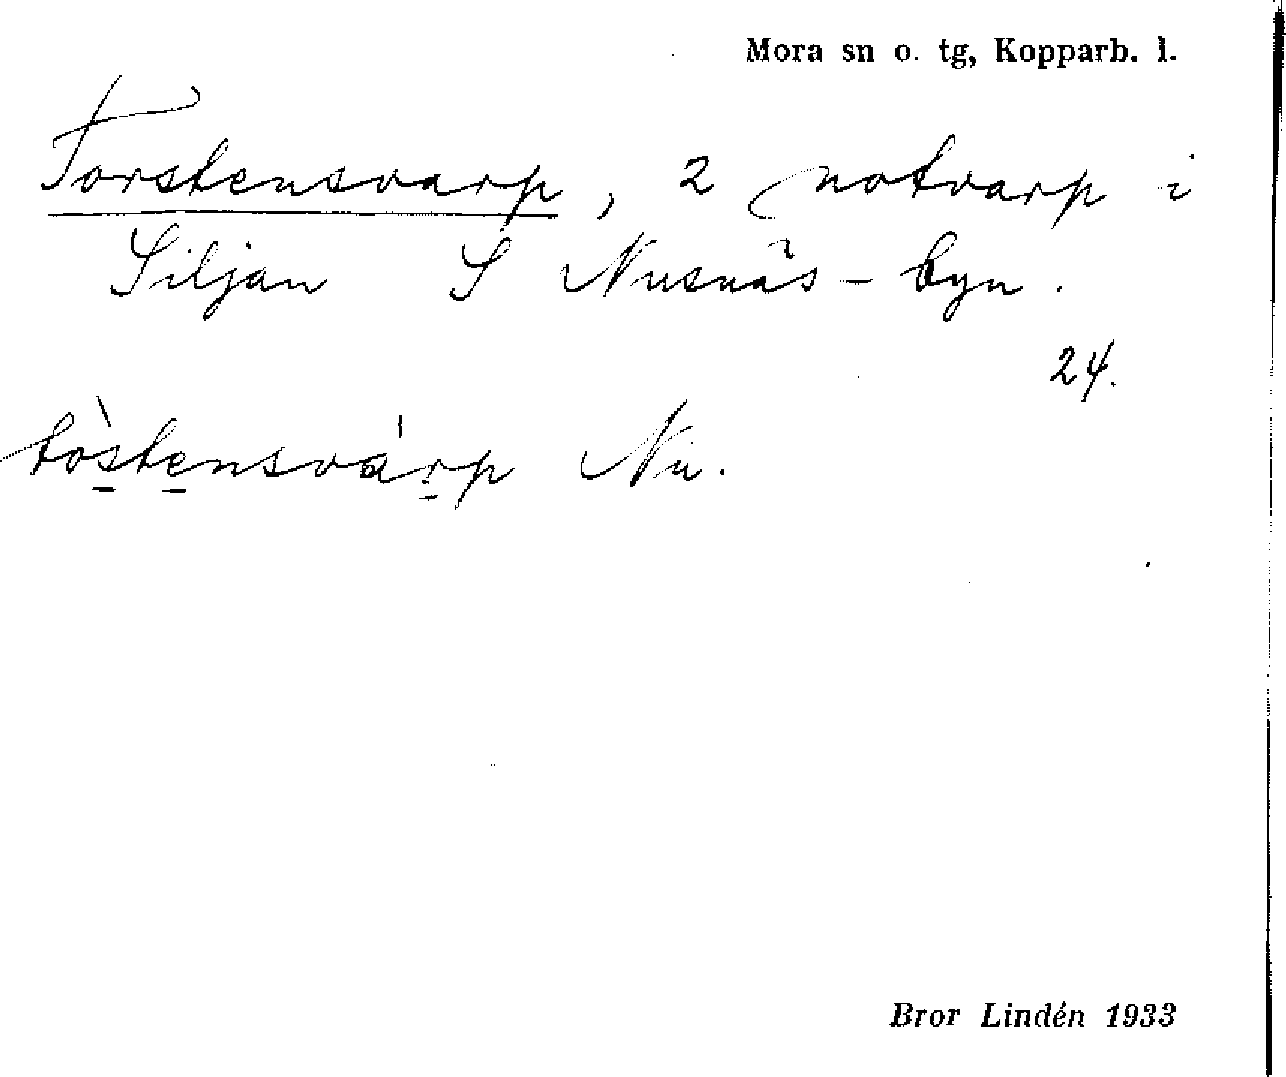 Mora sn o. tg, Kopparb. l.
Torstensvarp, 2 notvarp i
Siljan S Nusnäs-byn.
24.
tòstensvárp Nu.
Bror Lindén 1933